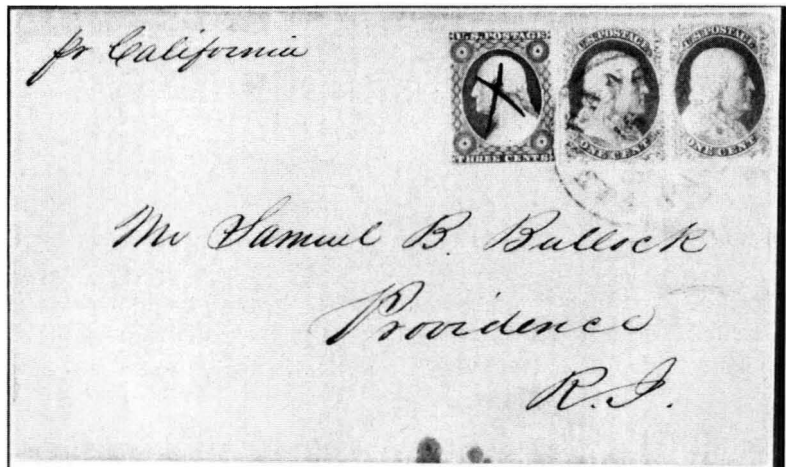 pr California
U.S. POSTAGE
THREE CENTS
U.S. POSTAGE
ONE CENT
U.S. POSTAGE
ONE CENT
Mr Samuel B. Bullock
Providence
R.I.